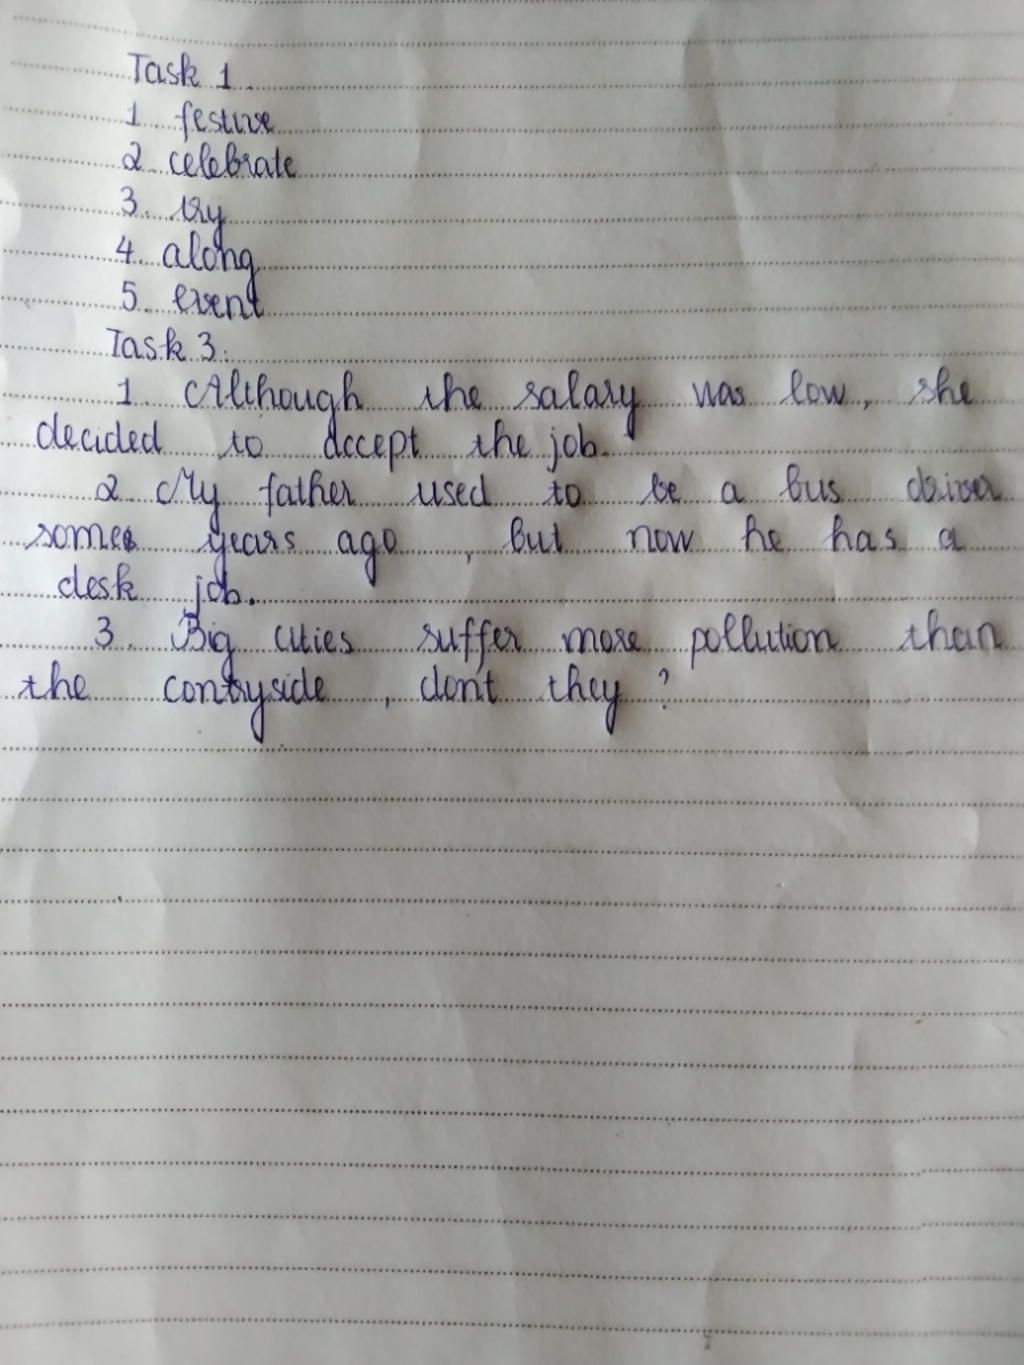 Task 1
1. festive
2. celebrate
3. try
4. along
5. event
Task 3:
1. Although the salary was low, she
decided to accept the job.
2. My father used to be a bus driver
some years ago, but now he has a
desk job.
3. Big cities suffer more pollution than
the contryside, dont they?